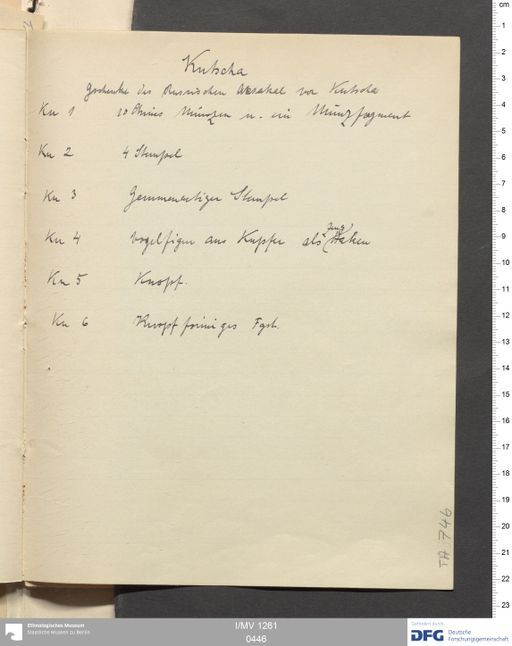 Kutscha
Geschenke des Russischen Aksakal von Kutscha
Ku 1 10 Chines Münzen u. ein Münzfragment
Ku 2 4 Stempel
Ku 3 Gemmenartiger Stempel
Ku 4 Vogelfigur aus Kupfer als Haken
Ku 5 Knopf.
Ku 6 Knopfförmiges Fgsk.
TA 746
Ethnologisches Museum
Staatliche Museen zu Berlin
I/MV 1261
0446
Gefördert durch
DFG Deutsche
Forschungsgemeinschaft
cm
1
2
3
4
5
6
7
8
9
10
11
12
13
14
15
16
17
18
19
20
21
22
23